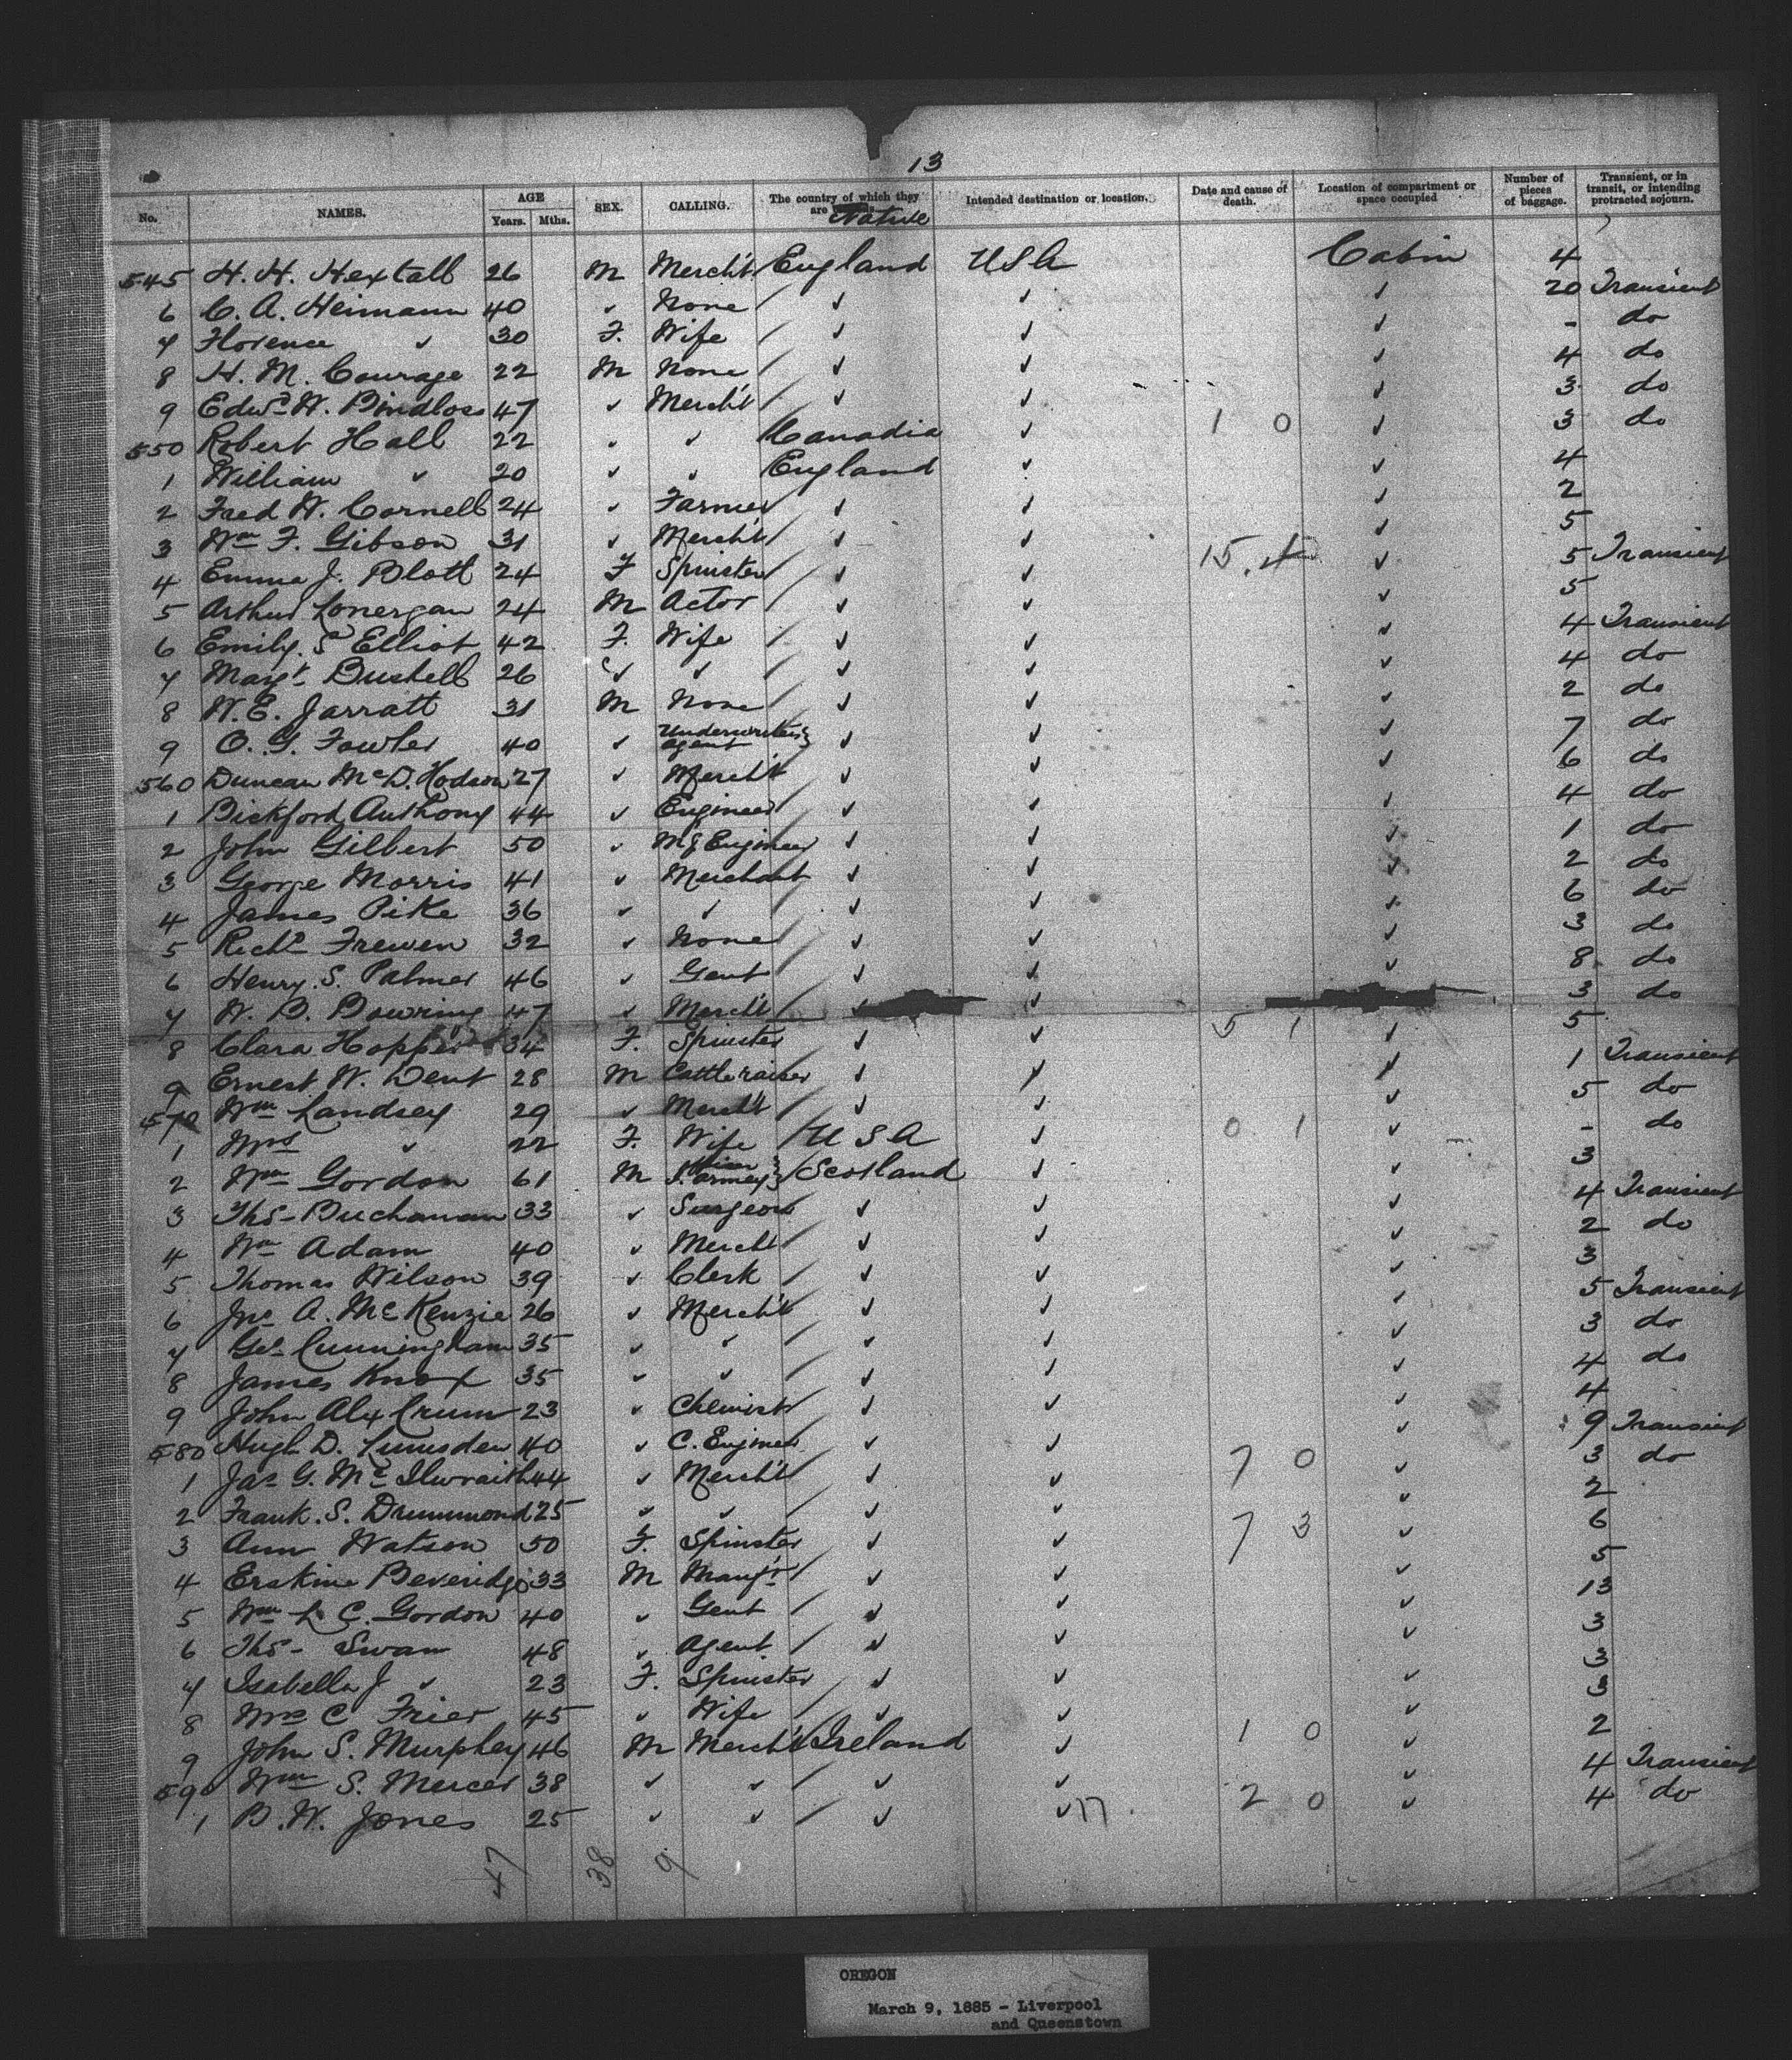 13
No. NAMES. AGE Years. Mths. SEX. CALLING. The country of which they are Native Intended destination or location. Date and cause of death. Location of compartment or space occupied Number of pieces of baggage. Transient, or in transit, or intending protracted sojourn.
545 H. H. Hextall 26 M Mercht England USA Cabin 4
6 C. A. Heimann 40 ✓ None / ✓ ✓ ✓ 20 Transient
7 Florence ✓ 30 F. Wife / ✓ ✓ ✓ - do
8 H. M. Courage 22 M None / ✓ ✓ ✓ 4 do
9 Edwd W. Bindloss 47 ✓ Mercht / ✓ ✓ ✓ 3 do
550 Robert Hall 22 ✓ ✓ Canadia ✓ 1 0 ✓ 3 do
1 William ✓ 20 ✓ ✓ England ✓ ✓ 4
2 Fred W. Cornell 24 ✓ Farmer / ✓ ✓ ✓ 2
3 Wm F. Gibson 31 ✓ Mercht / ✓ ✓ ✓ 5
4 Emma J. Blott 24 F Spinster / ✓ ✓ 15. ✓ 5 Transient
5 Arthur Lonergan 24 M Actor / ✓ ✓ ✓ 5
6 Emily. S Elliot 42 F. Wife / ✓ ✓ ✓ 4 Transient
7 Margt Bushell 26 ✓ ✓ / ✓ ✓ ✓ 4 do
8 W. E. Jarratt 31 M None / ✓ ✓ ✓ 2 do
9 O. G. Fowler 40 ✓ Underwriters agent ✓ ✓ ✓ 7 do
560 Duncan McD. Hodson 27 ✓ Mercht / ✓ ✓ ✓ 6 do
1 Bickford Anthony 44 ✓ Engineer / ✓ ✓ ✓ 4 do
2 John Gilbert 50 ✓ Mg Engineer ✓ ✓ ✓ 1 do
3 George Morris 41 ✓ Merchant ✓ ✓ ✓ 2 do
4 James Pike 36 ✓ ✓ / ✓ ✓ ✓ 6 do
5 Richd Frewen 32 ✓ None / ✓ ✓ ✓ 3 do
6 Henry. S. Palmer 46 ✓ Gent / ✓ ✓ ✓ 8 do
7 W. B. Bowring 47 ✓ Mercht / ✓ ✓ 3 do
8 Clara Hopper 34 F. Spinster ✓ ✓ 5 1 ✓ 5
9 Ernest W. Dent 28 M Cattle raiser ✓ ✓ ✓ 1 Transient
570 Wm Landsey 29 ✓ Mercht / ✓ ✓ ✓ 5 do
1 Mrs ✓ 22 F. Wife / USA ✓ 0 1 ✓ - do
2 Wm Gordon 61 M Scotland ✓ ✓ 3
3 Ths- Buchanan 33 ✓ Surgeon ✓ ✓ ✓ 4 Transient
4 Wm Adam 40 ✓ Mercht / ✓ ✓ ✓ 2 do
5 Thomas Wilson 39 ✓ Clerk / ✓ ✓ ✓ 3
6 Jno A. McKenzie 26 ✓ Mercht / ✓ ✓ ✓ 5 Transient
7 Geo Cunningham 35 ✓ ✓ / ✓ ✓ ✓ 3 do
8 James Knox 35 ✓ ✓ / ✓ ✓ ✓ 4 do
9 John Alex Crum 23 ✓ Chemist / ✓ ✓ ✓ 4
580 Hugh D. Lumsden 40 ✓ C. Engineer ✓ ✓ ✓ 9 Transient
1 Jas G. McIlwraith 44 ✓ Mercht / ✓ ✓ 7 0 ✓ 3 do
2 Frank. S. Drummond 25 ✓ ✓ / ✓ ✓ ✓ 2
3 Ann Watson 50 F. Spinster / ✓ ✓ 7 3 ✓ 6
4 Erskine Beveridge 33 M Manfr / ✓ ✓ ✓ 5
5 Wm L C. Gordon 40 ✓ Gent / ✓ ✓ ✓ 13
6 Ths- Swan 48 ✓ Agent / ✓ ✓ ✓ 3
7 Isabella J ✓ 23 F. Spinster ✓ ✓ ✓ 3
8 Mrs C. Frier 45 ✓ Wife / ✓ ✓ ✓ 3
9 John S. Murphey 46 M Mercht Ireland ✓ 1 0 ✓ 2
590 Wm S. Mercer 38 ✓ ✓ / ✓ ✓ ✓ 4 Transient
1 B. W. Jones 25 ✓ ✓ / ✓ ✓ 17 2 0 ✓ 4 do
47 38 9
OREGON
March 9, 1885 - Liverpool
and Queenstown